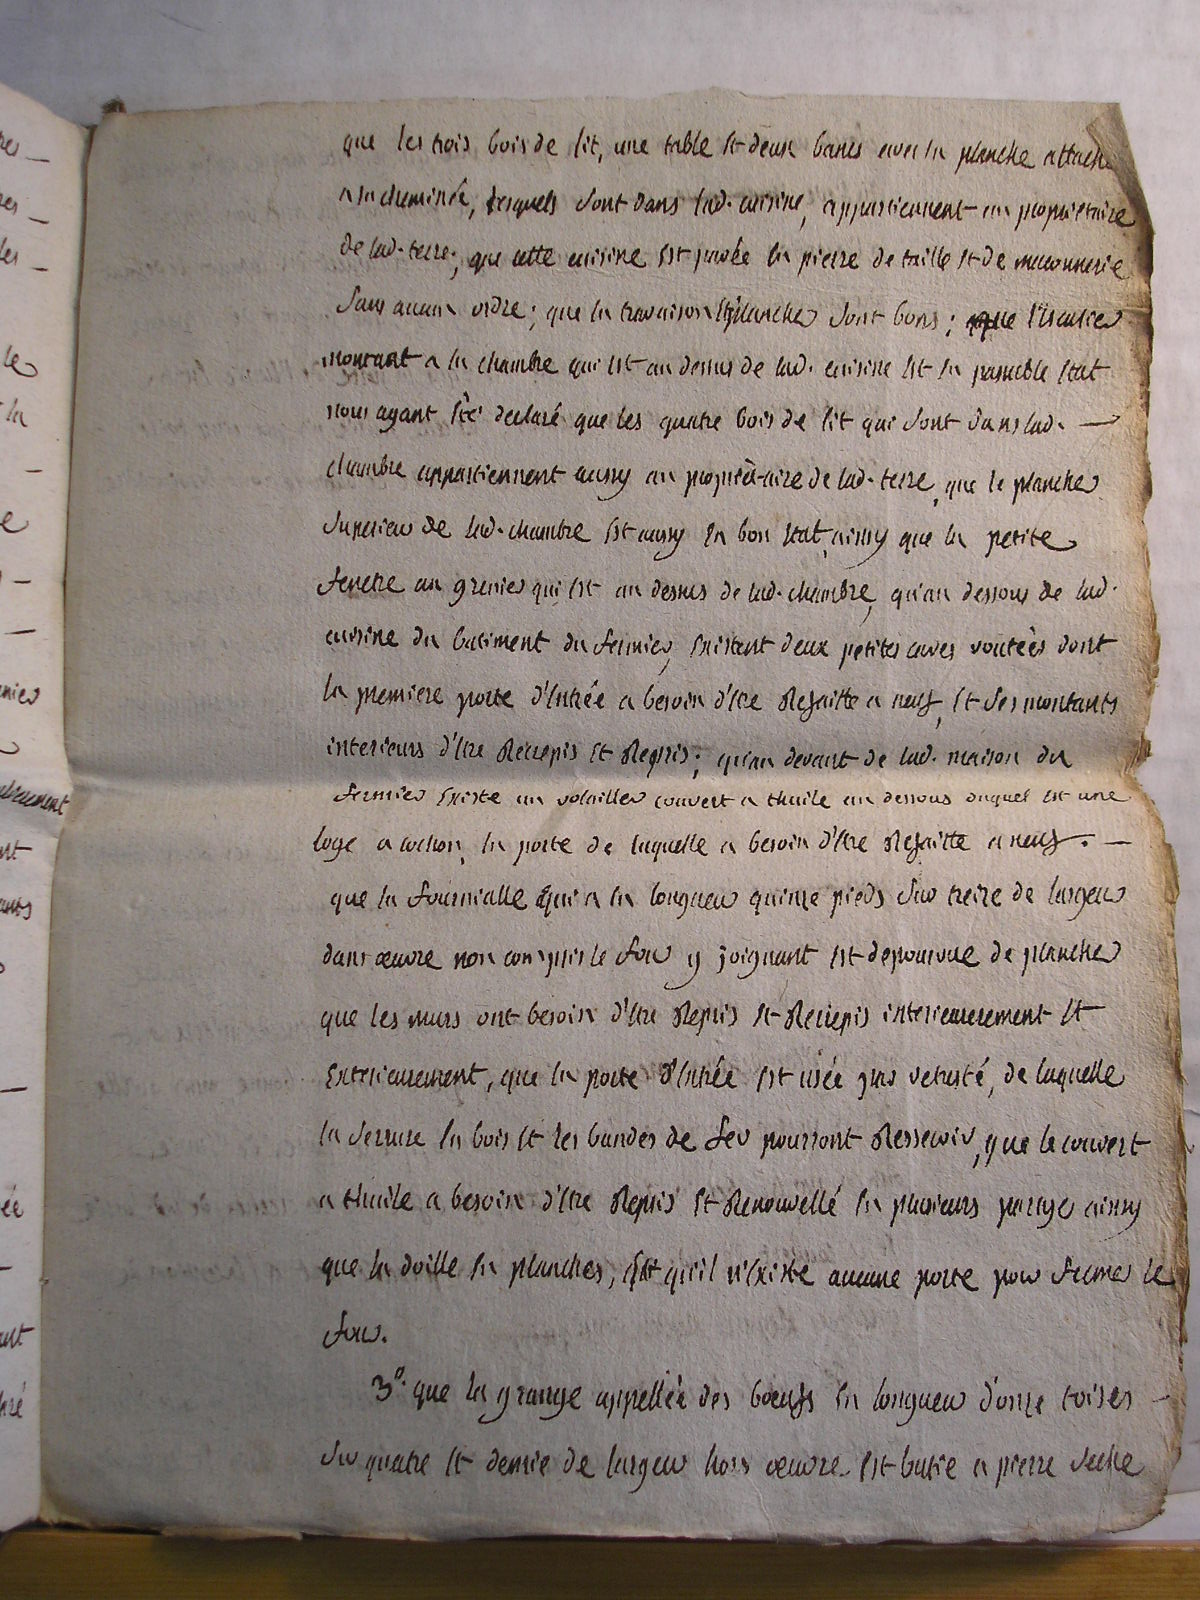 que les trois bois de lit, une table et deux bancs avec la planche attachée
a la cheminée, lesquels sont dans lad. cuisine, appartiennent au propriétaire
de lad. terre; que cette cuisine est pavée en pierre de taille et de maconnerie
sans aucun ordre; que la travaison et plancher sont bons; que l'escalier
montant a la chambre qui est au dessus de lad. cuisine est en passible etat
nous ayant eté declaré que les quatre bois de lit qui sont dans lad. —
chambre appartiennent aussy au propriètaire de lad. terre, que le plancher
superieur de lad. chambre est aussy en bon etat, ainsy que la petite
fenetre au grenier qui est au dessus de lad. chambre, qu'au dessous de lad.
cuisine du batiment du fermier, existent deux petites caves voutées dont
la premiere porte d'entrée a besoin d'etre Refaitte a neuf, et ses montants
interieurs d'etre Recrepis et Repris; qu'au devant de lad. maison du
fermier existe un volailler couvert a thuile au dessous duquel est une
loge a cochon, la porte de laquelle a besoin d'etre Refaitte a neuf. —
que la fournialle qui a en longueur quinze pieds sur treize de largeur
dans œuvre non compris le four y joignant est depourvue de plancher
que les murs ont besoin d'etre Repris et Recrepis interieurement et
Exterieurement, que la porte d'entrée est usée par vetusté, de laquelle
la serrure en bois et les bandes de fer pourront Resservir, que le couvert
a thuile a besoin d'etre Repris et Renouvellé en plusieurs partye ainsy
que la doille en planches, et qu'il n'existe aucune porte pour fermer le
four.
3°. que la grange appellée des bœufs en longueur d'onze toises —
sur quatre et demie de largeur hors œuvre est batie a pierre seche